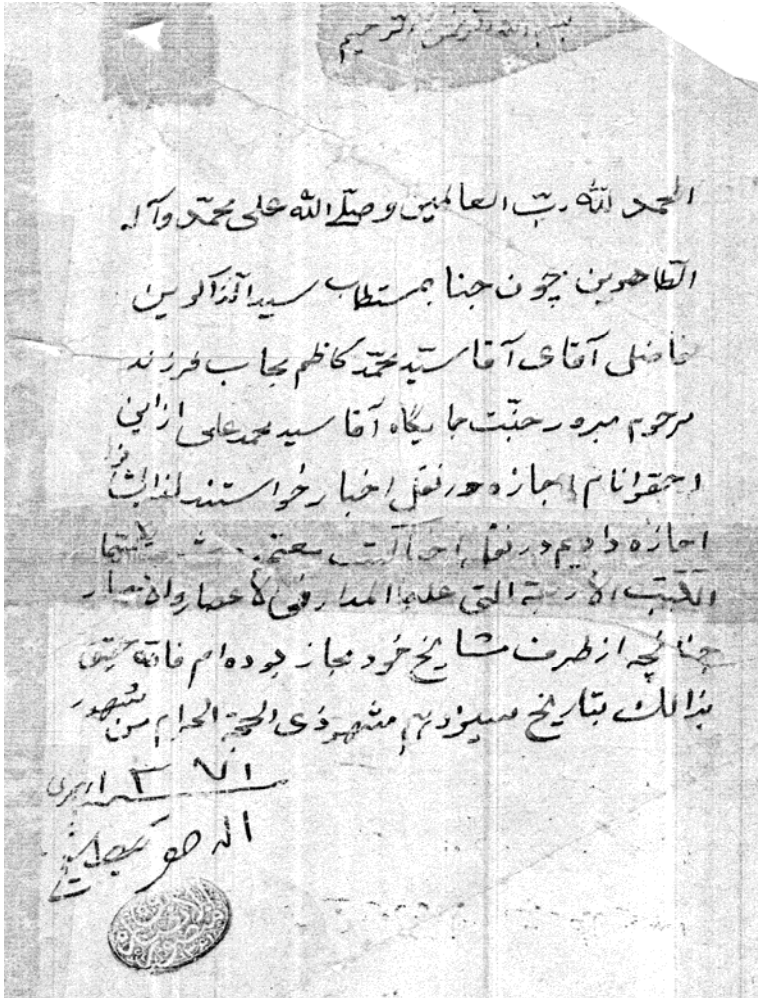 بسم الله الرحمن الرحیم
الحمد لله ربّ العالمین و صلّی الله علی محمّد و آله
الطّاهرین چون جناب مستطاب سید الذاکرین
فاضل آقای آقا سیّد محمّد کاظم مجاب فرزند
مرحوم مبرور جنّت جایگاه آقا سید محمد علی از این
احقر انام اجازه در نقل اخبار خواستند لذا ایشانرا
اجازه دادیم در نقل اخبار کتب معتبره شیعه لا سیّما
الکتب الأربعة التی علیها المدار فی الأعصار و الأمصار
چنانچه از طرف مشایخ خود مجاز بوده ام فانّه حقیق
بذالک بتاریخ سیزدهم شهر ذی الحجة الحرام من شهور
۱۳۷۱ هجری
الاحقر